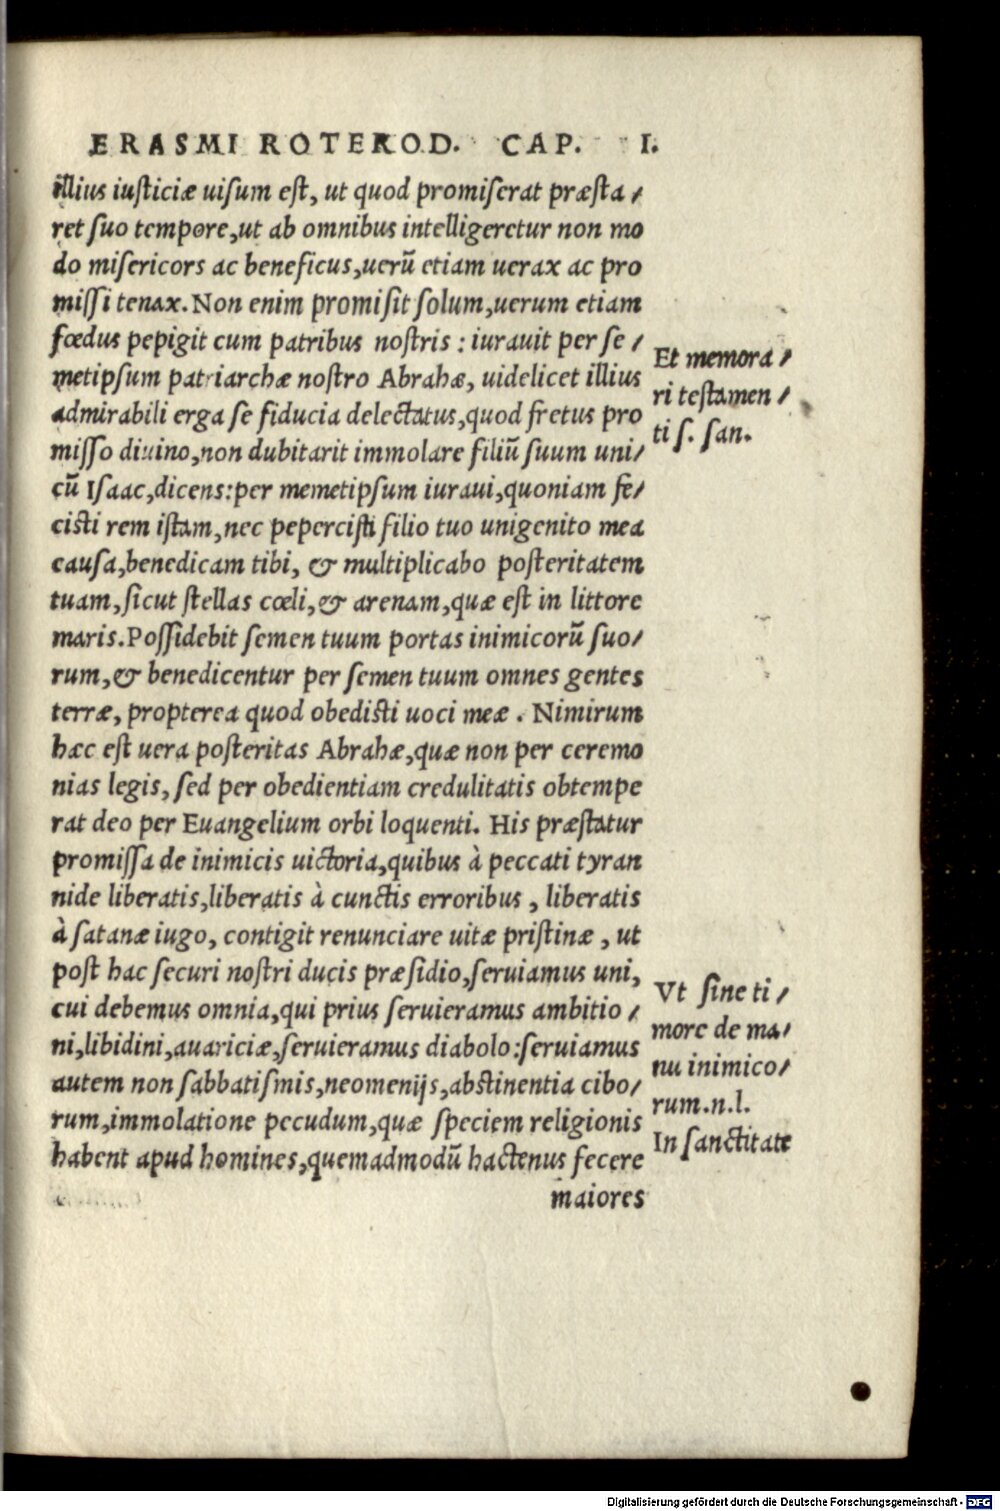 ERASMI ROTEROD. CAP. I.
illius iusticiæ uisum est, ut quod promiserat præsta/
ret suo tempore, ut ab omnibus intelligeretur non mo
do misericors ac beneficus, uerũ etiam uerax ac pro
missi tenax. Non enim promisit solum, uerum etiam
fœdus pepigit cum patribus nostris: iurauit per se/
metipsum patriarchæ nostro Abrahæ, uidelicet illius
admirabili erga se fiducia delectatus, quod fretus pro
misso diuino, non dubitarit immolare filiũ suum uni/
cũ Isaac, dicens: per memetipsum iuraui, quoniam fe/
cisti rem istam, nec pepercisti filio tuo unigenito mea
causa, benedicam tibi, & multiplicabo posteritatem
tuam, sicut stellas cœli, & arenam, quæ est in littore
maris. Possidebit semen tuum portas inimicorũ suo/
rum, & benedicentur per semen tuum omnes gentes
terræ, propterea quod obedisti uoci meæ. Nimirum
hæc est uera posteritas Abrahæ, quæ non per ceremo
nias legis, sed per obedientiam credulitatis obtempe
rat deo per Euangelium orbi loquenti. His præstatur
promissa de inimicis uictoria, quibus à peccati tyran
nide liberatis, liberatis à cunctis erroribus, liberatis
à satanæ iugo, contigit renunciare uitæ pristinæ, ut
post hac securi nostri ducis præsidio, seruiamus uni,
cui debemus omnia, qui prius seruieramus ambitio/
ni, libidini, auariciæ, seruieramus diabolo: seruiamus
autem non sabbatismis, neomenijs, abstinentia cibo/
rum, immolatione pecudum, quæ speciem religionis
habent apud homines, quemadmodũ hactenus fecere
maiores
Et memora/
ri testamen/
ti s. san.
Vt sine ti/
more de ma/
nu inimico/
rum. n. l.
In sanctitate
Digitalisierung gefördert durch die Deutsche Forschungsgemeinschaft - DFG